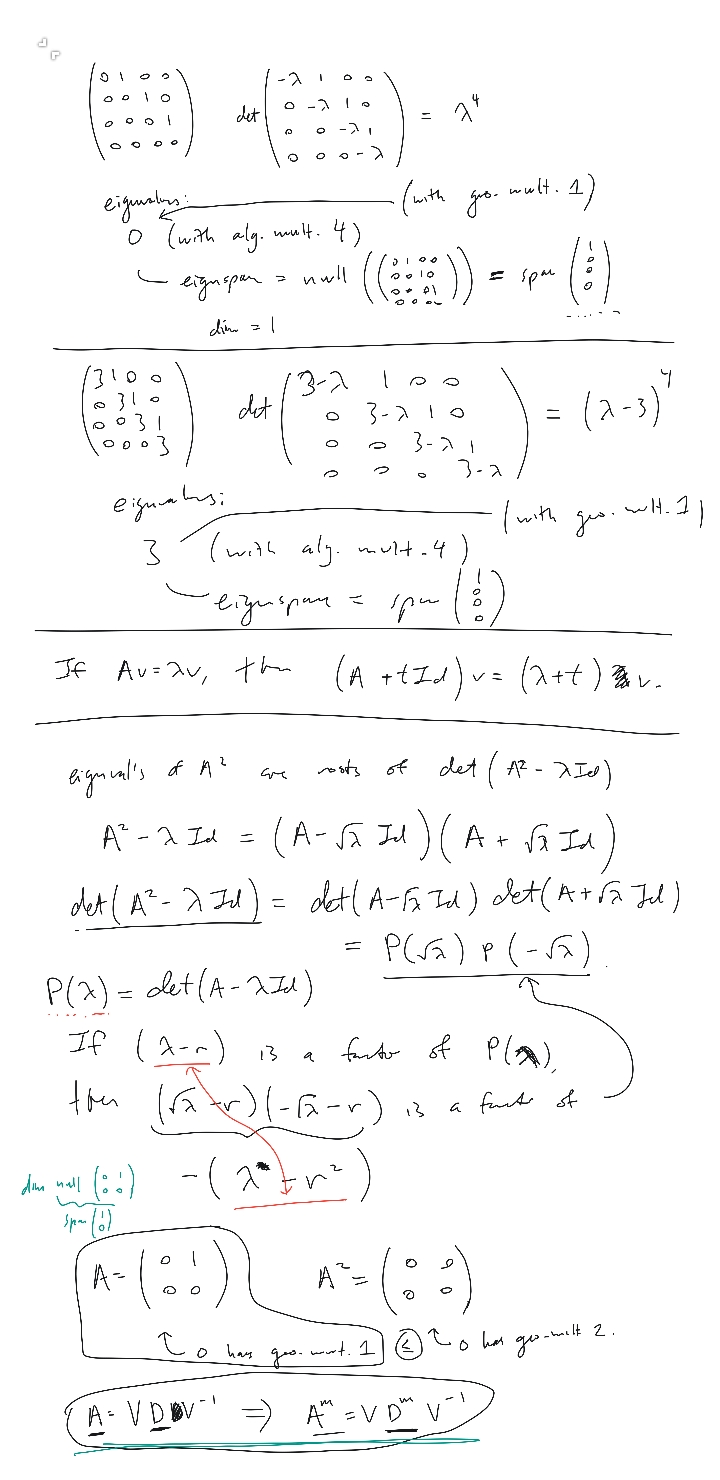 (0 1 0 0; 0 0 1 0; 0 0 0 1; 0 0 0 0) det (-λ 1 0 0; 0 -λ 1 0; 0 0 -λ 1; 0 0 0 -λ) = λ⁴
eigenvalues: (with geo. mult. 1)
0 (with alg. mult. 4)
eigenspace = null ((0 1 0 0; 0 0 1 0; 0 0 0 1; 0 0 0 0)) = span (1; 0; 0; 0)
dim = 1
(3 1 0 0; 0 3 1 0; 0 0 3 1; 0 0 0 3) det (3-λ 1 0 0; 0 3-λ 1 0; 0 0 3-λ 1; 0 0 0 3-λ) = (λ-3)⁴
eigenvalues: (with geo. mult. 1)
3 (with alg. mult. 4)
eigenspace = span (1; 0; 0; 0)
If Av=λv, then (A + t Id) v = (λ+t) v.
eigenval's of A² are roots of det (A² - λ Id)
A² - λ Id = (A - √λ Id)(A + √λ Id)
det(A² - λ Id) = det(A - √λ Id) det(A + √λ Id)
= P(√λ) P(-√λ).
P(λ) = det(A - λ Id)
If (λ-r) is a factor of P(λ),
then (√λ - r)(-√λ - r) is a factor of
-(λ - r²)
dim null (0 1; 0 0)
span (1; 0)
A = (0 1; 0 0) A² = (0 0; 0 0)
0 has geo. mult. 1 ≤ 0 has geo. mult 2.
A = V D V⁻¹ ⇒ Aᵐ = V Dᵐ V⁻¹